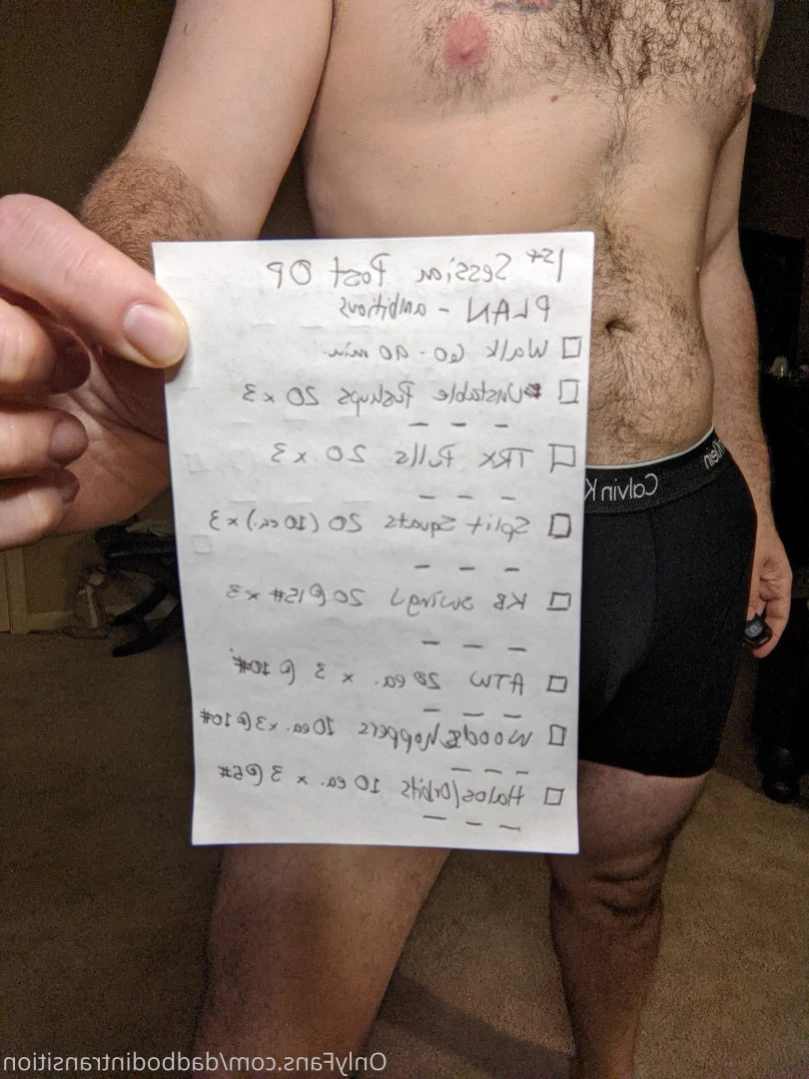 1st Session Post OP
PLAN - ambitious
Walk 60-90 min.
Unstable Pushups 20 x 3
TRX Pulls 20 x 3
Split Squats 20 (10 ea.) x 3
KB Swings 20 @ 15# x 3
ATW 20 ea. x 3 @ 10#
Woodchoppers 10 ea. x 3 @ 10#
Halos/Orbits 10 ea. x 3 @ 5#
Calvin K
Klein
OnlyFans.com/dadbodintransition